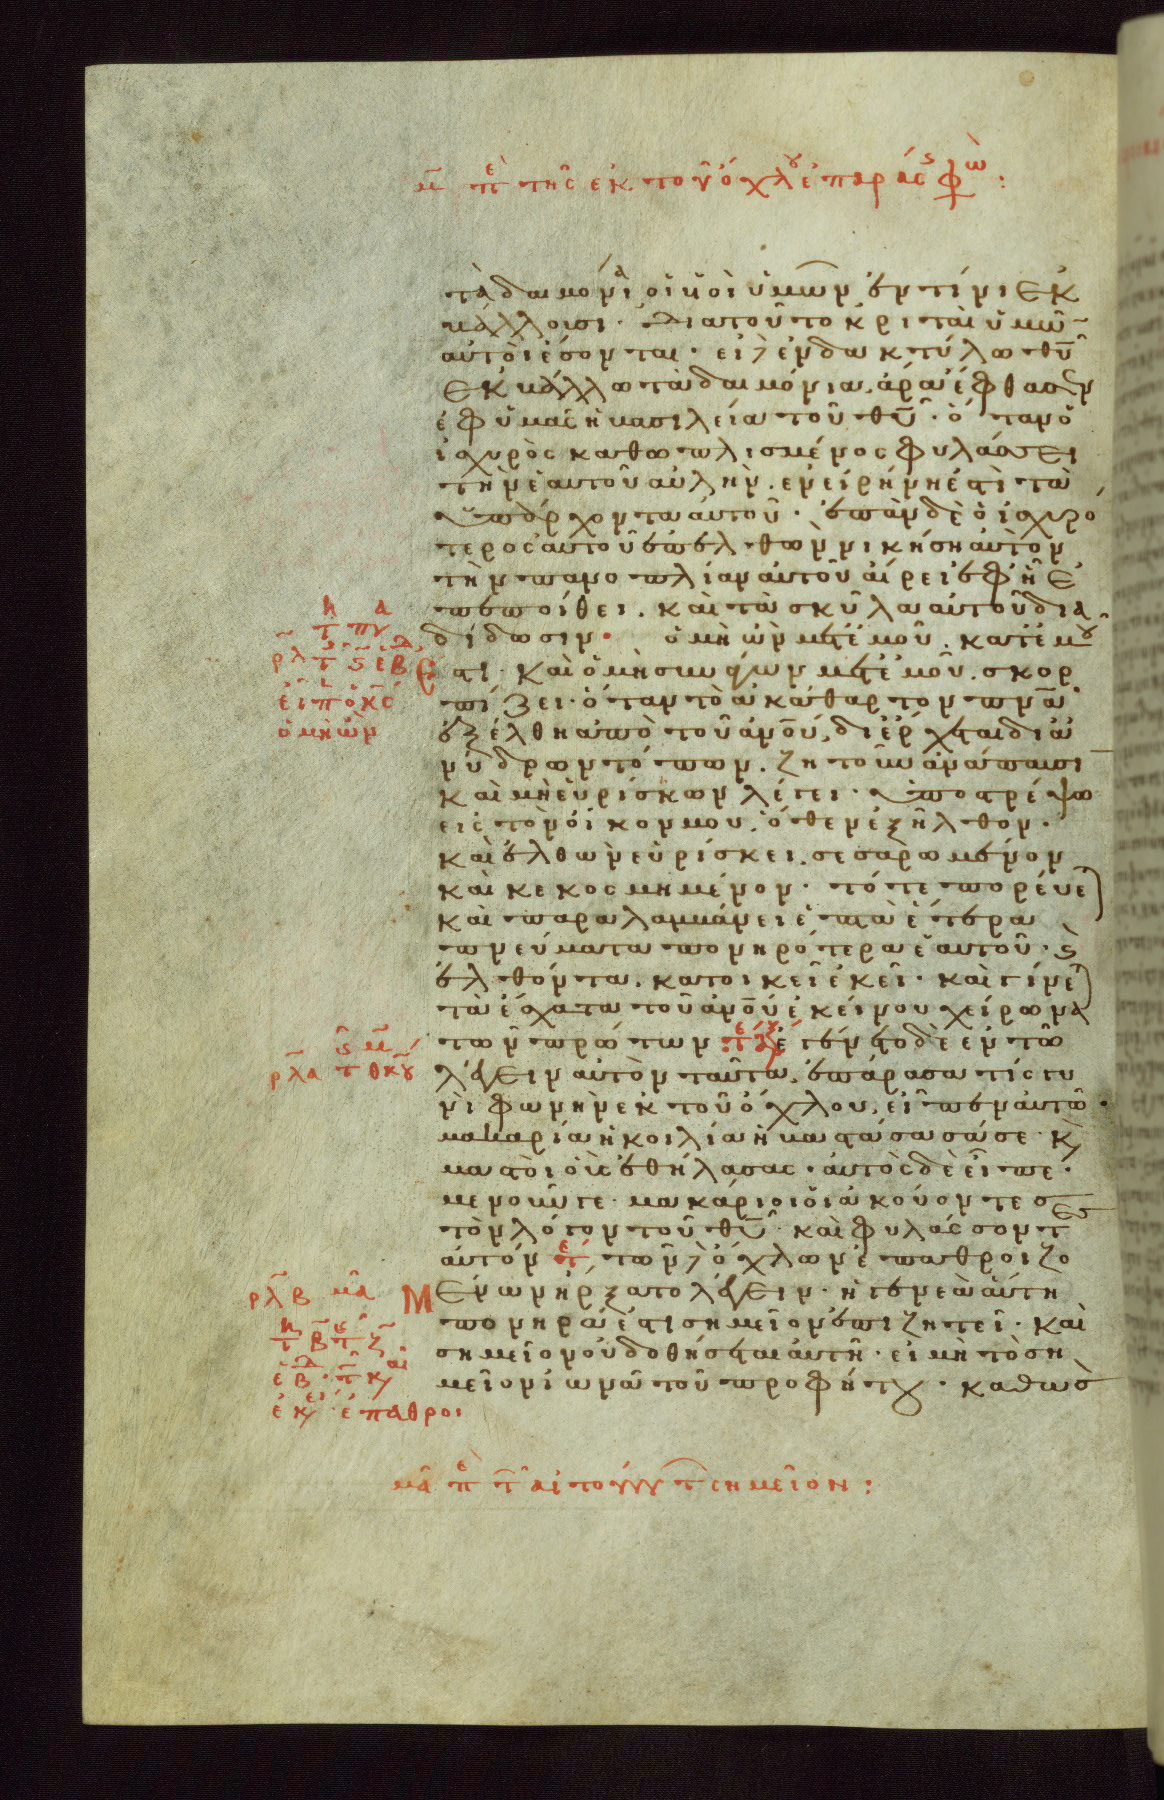 μ̄ πε τῆς ἐκ τοῦ ὄχλου ἐπαράσης φω:
τὰ δαιμόνια· οἱ υἱοὶ ὑμῶν ἐν τίνι ἐκ
βάλλουσι· διατοῦτο κριταὶ ὑμῶν
αὐτοὶ ἔσονται· εἰ δὲ ἐν δακτύλω θυ
ἐκβάλλω τὰ δαιμόνια, ἄρα ἔφθασεν
ἐφ ὑμᾶς ἡ βασιλεία τοῦ θυ· ὅταν ὁ
ἰσχυρὸς καθωπλισμένος φυλάσσει
τὴν ἑαυτοῦ αὐλήν, ἐν εἰρήνη ἐστὶ τὰ
ὑπάρχοντα αὐτοῦ· ἐπὰν δὲ ὁ ἰσχυρό
τερος αὐτοῦ ἐπελθὼν νικήση αὐτὸν
τὴν πανοπλίαν αὐτοῦ αἴρει ἐφ ἧ ἐ
πεποίθει, καὶ τὰ σκῦλα αὐτοῦ δια
δίδωσιν· ὁ μὴ ὢν μετ ἐμοῦ, κατ ἐμοῦ
ἐστι· καὶ ὁ μὴ συνάγων μετ ἐμοῦ, σκορ
πίζει· ὅταν τὸ ἀκάθαρτον πνα
ἐξέλθη ἀπὸ τοῦ ανου, διέρχεται δι ἀ
νύδρων τόπων, ζητοῦν ἀνάπαυσι
καὶ μὴ εὑρίσκων λέγει· ὑποστρέψω
εἰς τὸν οἶκον μου, ὅθεν ἐξῆλθον·
καὶ ἐλθὼν εὑρίσκει, σεσαρωμένον
καὶ κεκοσμημένον· τότε πορεύε
καὶ παραλαμβάνει ἑπτὰ ἕτερα
πνεύματα πονηρότερα ἑαυτοῦ· καὶ
ἐλθόντα, κατοικεῖ ἐκεῖ· καὶ γίνε
τὰ ἔσχατα τοῦ ανου ἐκείνου χείρονα
τῶν πρώτων ἐγένετο δὲ ἐν τῶ
λέγειν αὐτὸν ταῦτα, ἐπάρασα τίς γυ
νὴ φωνὴν ἐκ τοῦ ὄχλου, εἶπεν αὐτῶ·
μακαρία ἡ κοιλία ἡ βαστάσασά σε καὶ
μαστοὶ οὓς ἐθήλασας· αὐτὸς δὲ εἶπε·
μενοῦν γε μακάριοι οἱ ἀκούοντες
τὸν λόγον τοῦ θυ καὶ φυλάσσοντες
αὐτόν τῶν δὲ ὄχλων ἐπαθροιζο
μένων ἤρξατο λέγειν· ἡ γενεὰ αὕτη
πονηρά ἐστι σημεῖον ἐπιζητεῖ· καὶ
σημεῖον οὐ δοθήσεται αὐτῆ· εἰ μὴ τὸ ση
μεῖον ἰωνᾶ τοῦ προφήτου· καθὼς
ρλα
ρλβ μα
ἐπαθροι
ὁ μὴ ὢν
μα πε τ αἰτούντ σημεῖον: